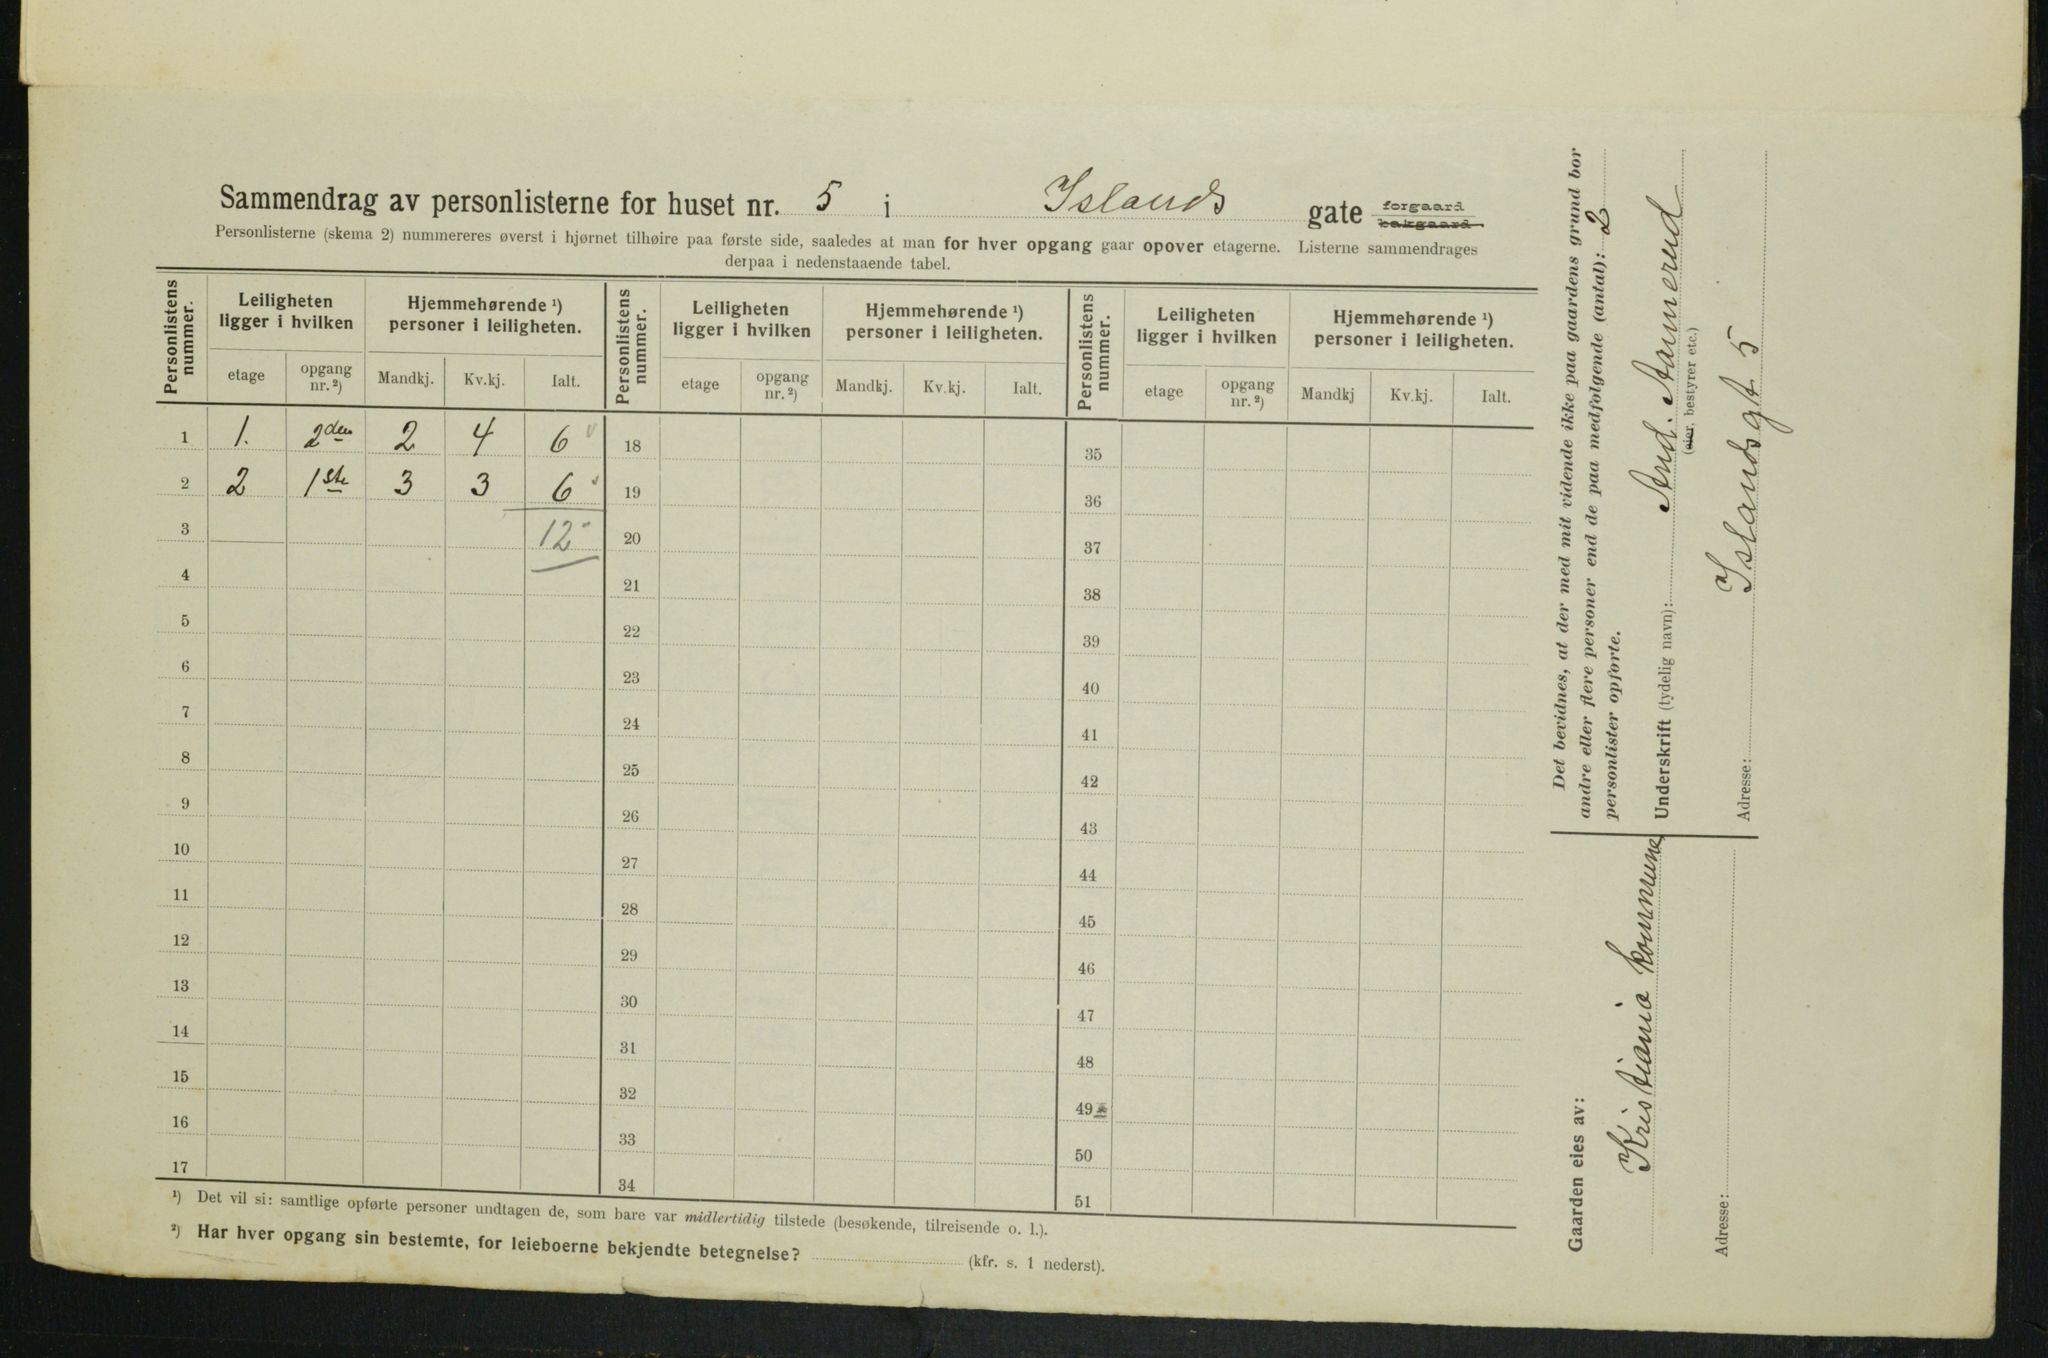 Sammendrag av personlisterne for huset nr. 5 i Islands gate forgaard bakgaard
Personlisterne (skema 2) nummereres øverst i hjørnet tilhøire paa første side, saaledes at man for hver opgang gaar opover etagerne. Listerne sammendrages
derpaa i nedenstaaende tabel.
Personlistens nummer. Leiligheten ligger i hvilken Hjemmehørende ¹) personer i leiligheten. Personlistens nummer. Leiligheten ligger i hvilken Hjemmehørende ¹) personer i leiligheten. Personlistens nummer. Leiligheten ligger i hvilken Hjemmehørende ¹) personer i leiligheten.
etage opgang nr. ²) Mandkj. Kv.kj. Ialt. etage opgang nr. ²) Mandkj. Kv.kj. Ialt. etage opgang nr. ²) Mandkj Kv.kj. Ialt.
1 1. 2den 2 4 6 18 35
2 2 1ste 3 3 6 19 36
3 12 20 37
4 21 38
5 22 39
6 23 40
7 24 41
8 25 42
9 26 43
10 27 44
11 28 45
12 29 46
13 30 47
14 31 48
15 32 49
16 33 50
17 34 51
¹) Det vil si: samtlige opførte personer undtagen de, som bare var midlertidig tilstede (besøkende, tilreisende o. l.).
²) Har hver opgang sin bestemte, for leieboerne bekjendte betegnelse? (kfr. s. 1 nederst).
Det bevidnes, at der med mit vidende ikke paa gaardens grund bor
andre eller flere personer end de paa medfølgende (antal): 2
personlister opførte.
Underskrift (tydelig navn): And. Aamerud
(eier, bestyrer etc.)
Adresse: Islandsgt 5
Gaarden eies av:
Kristiania kommune
Adresse: